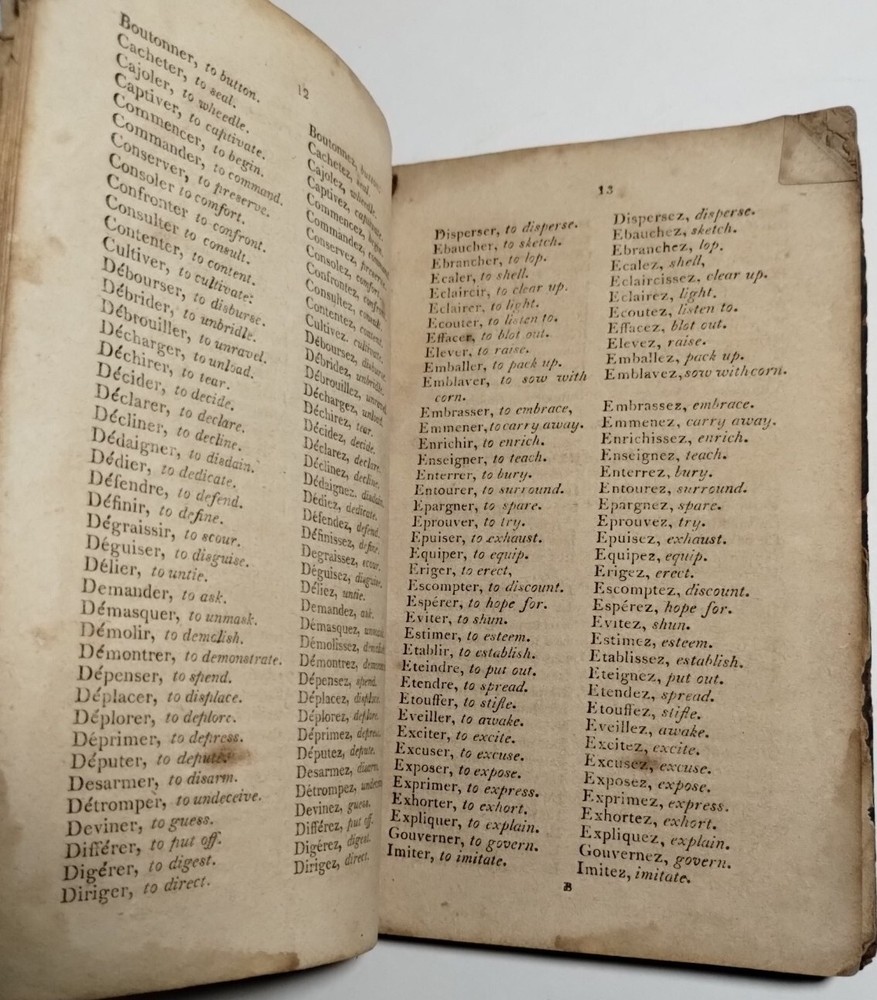 12
Boutonner, to button.
Cacheter, to seal.
Cajoler, to wheedle.
Captiver, to captivate.
Commencer, to begin.
Commander, to command.
Conserver, to preserve.
Consoler to comfort.
Confronter to confront.
Consulter to consult.
Contenter, to content.
Cultiver, to cultivate:
Débourser, to disburse.
Débrider, to unbridle.
Débrouiller, to unravel.
Décharger, to unload.
Déchirer, to tear.
Décider, to decide.
Déclarer, to declare.
Décliner, to decline.
Dédaigner, to disdain.
Dédier, to dedicate.
Défendre, to defend.
Définir, to define.
Dégraissir, to scour.
Déguiser, to disguise.
Délier, to untie.
Demander, to ask.
Démasquer, to unmask.
Démolir, to demolish.
Démontrer, to demonstrate.
Dépenser, to spend.
Déplacer, to displace.
Déplorer, to deplore.
Déprimer, to depress.
Députer, to depute.
Desarmer, to disarm.
Détromper, to undeceive.
Deviner, to guess.
Différer, to put off.
Digérer, to digest.
Diriger, to direct.
Boutonnez,
Cachetez, seal.
Cajolez, wheedle.
Captivez,
Commencez, begin.
Commandez,
Conservez,
Consolez,
Confrontez,
Consultez,
Contentez,
Cultivez. cultivate.
Deboursez,
Débridez, unbridle.
Débrouillez,
Déchargez,
Déchirez, tear.
Décidez, decide.
Déclarez, declare.
Déclinez,
Dédaignez,
Dédiez, dedicate.
Défendez, defend.
Définissez,
Degraissez,
Déguisez,
Déliez, untie.
Demandez, ask.
Démasquez,
Démolissez,
Démontrez,
Dépensez, spend.
Déplacez,
Déplorez, deplore.
Déprimez,
Députez, depute.
Desarmez, disarm.
Détrompez,
Devinez, guess.
Différez, put off.
Digérez, digest.
Dirigez, direct.
13
Disperser, to disperse.
Ebaucher, to sketch.
Ebrancher, to lop.
Ecaler, to shell.
Eclaircir, to clear up.
Eclairer, to light.
Ecouter, to listen to.
Effacer, to blot out.
Elever, to raise.
Emballer, to pack up.
Emblaver, to sow with
corn.
Embrasser, to embrace,
Emmener, to carry away.
Enrichir, to enrich.
Enseigner, to teach.
Enterrer, to bury.
Entourer, to surround.
Epargner, to spare.
Eprouver, to try.
Epuiser, to exhaust.
Equiper, to equip.
Eriger, to erect,
Escompter, to discount.
Espérer, to hope for.
Eviter, to shun.
Estimer, to esteem.
Etablir, to establish.
Eteindre, to put out.
Etendre, to spread.
Etouffer, to stifle.
Eveiller, to awake.
Exciter, to excite.
Excuser, to excuse.
Exposer, to expose.
Exprimer, to express.
Exhorter, to exhort.
Expliquer, to explain.
Gouverner, to govern.
Imiter, to imitate.
Dispersez, disperse.
Ebauchez, sketch.
Ebranchez, lop.
Ecalez, shell,
Eclaircissez, clear up.
Eclairez, light.
Ecoutez, listen to.
Effacez, blot out.
Elevez, raise.
Emballez, pack up.
Emblavez, sow with corn.
Embrassez, embrace.
Emmenez, carry away.
Enrichissez, enrich.
Enseignez, teach.
Enterrez, bury.
Entourez, surround.
Epargnez, spare.
Eprouvez, try.
Epuisez, exhaust.
Equipez, equip.
Erigez, erect.
Escomptez, discount.
Espérez, hope for.
Evitez, shun.
Estimez, esteem.
Etablissez, establish.
Eteignez, put out.
Etendez, spread.
Etouffez, stifle.
Eveillez, awake.
Excitez, excite.
Excusez, excuse.
Exposez, expose.
Exprimez, express.
Exhortez, exhort.
Expliquez, explain.
Gouvernez, govern.
Imitez, imitate.
B